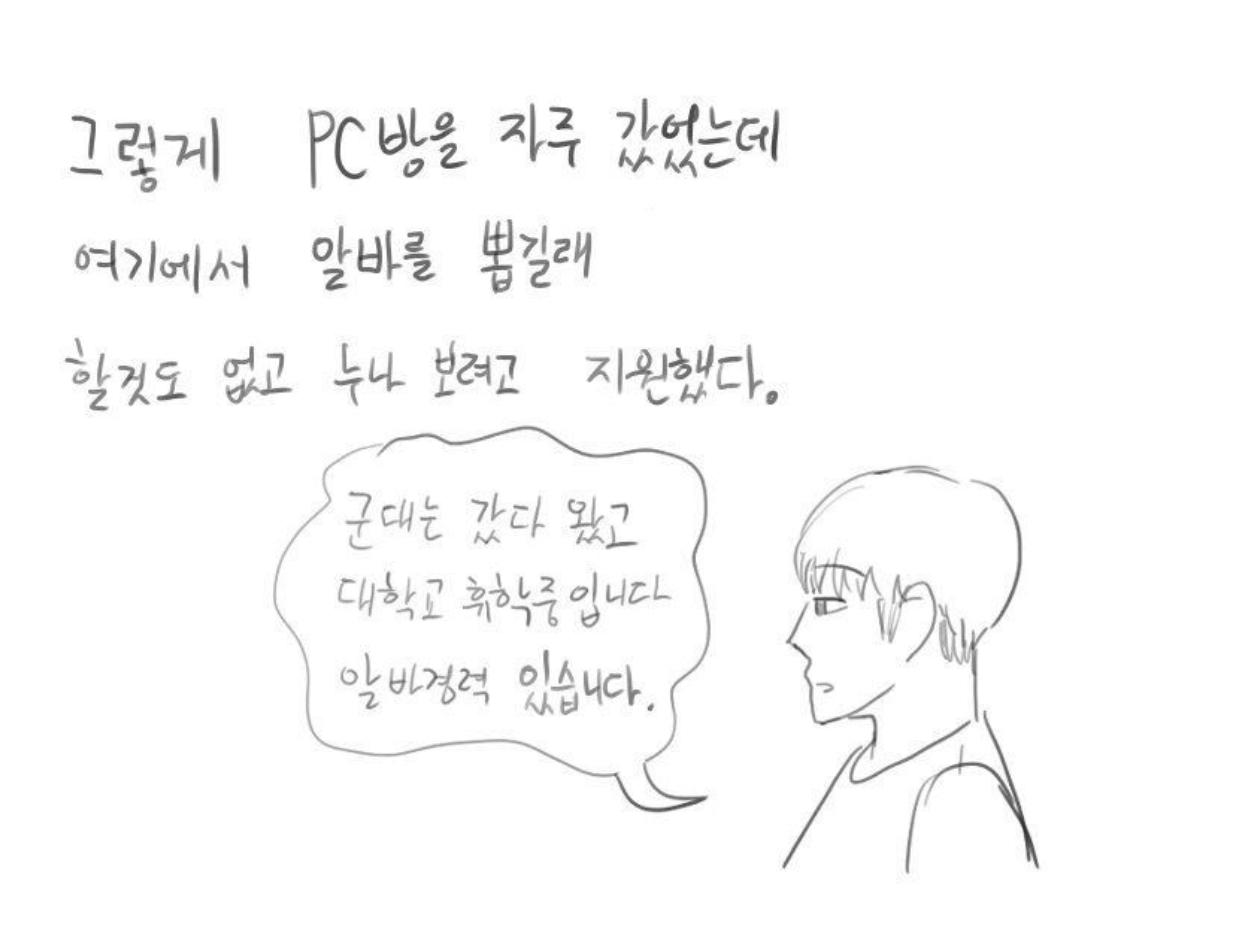 그렇게 PC방을 자주 갔었는데
여기에서 알바를 뽑길래
할것도 없고 누나 보려고 지원했다.
군대는 갔다 왔고
대학교 휴학중입니다
알바경력 있습니다.